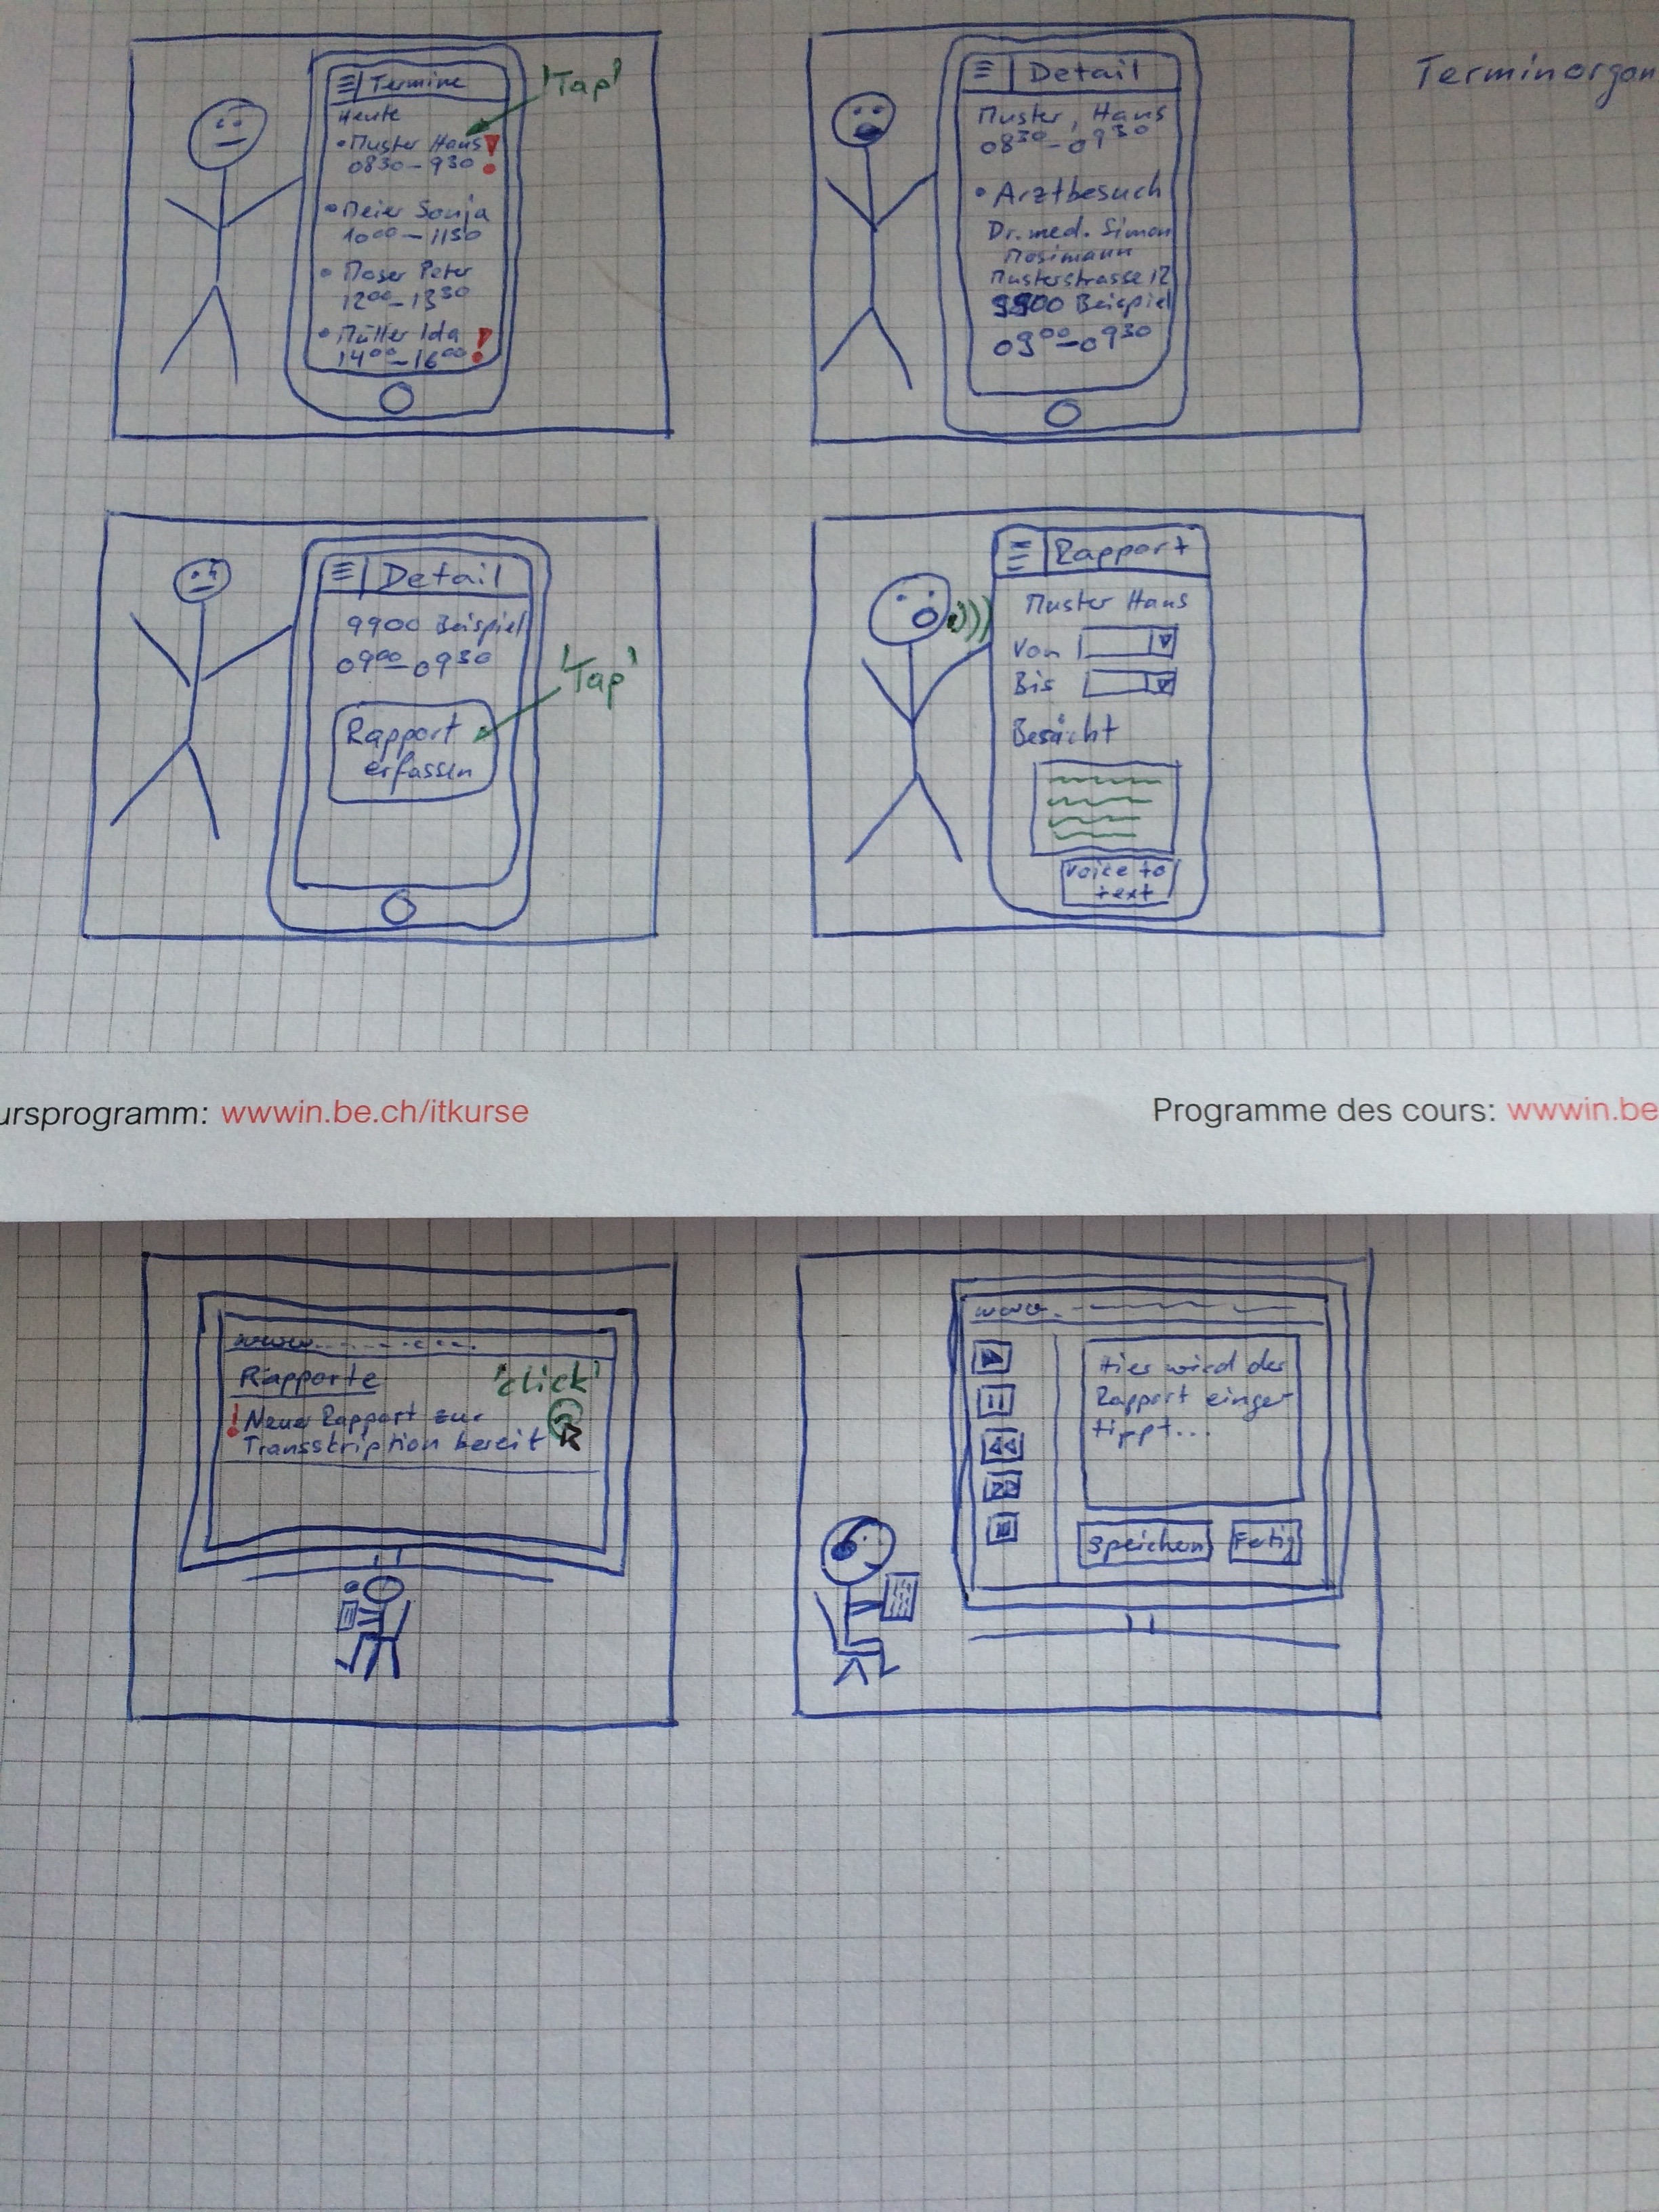 Terminorgan
Termine
'Tap'
Heute
• Muster Hans !
0830 – 930
• Meier Sonja
10 00 – 1130
• Moser Peter
12 00 – 13 30
• Müller Ida !
14 00 – 16 00
Detail
Muster, Hans
08 30 – 09 30
• Arztbesuch
Dr. med. Simon
Mosimann
Musterstrasse 12
9900 Beispiel
09 00 – 09 30
Detail
9900 Beispiel
09 00 – 09 30
'Tap'
Rapport
erfassen
Rapport
Muster Hans
Von
Bis
Voice to
text
ursprogramm: wwwin.be.ch/itkurse
Programme des cours: wwwin.be
www.
Rapporte
'click'
! Neuer Rapport zur
Transskription bereit
www.
Hier wird der
Rapport einge
tippt...
Speichern
Fertig